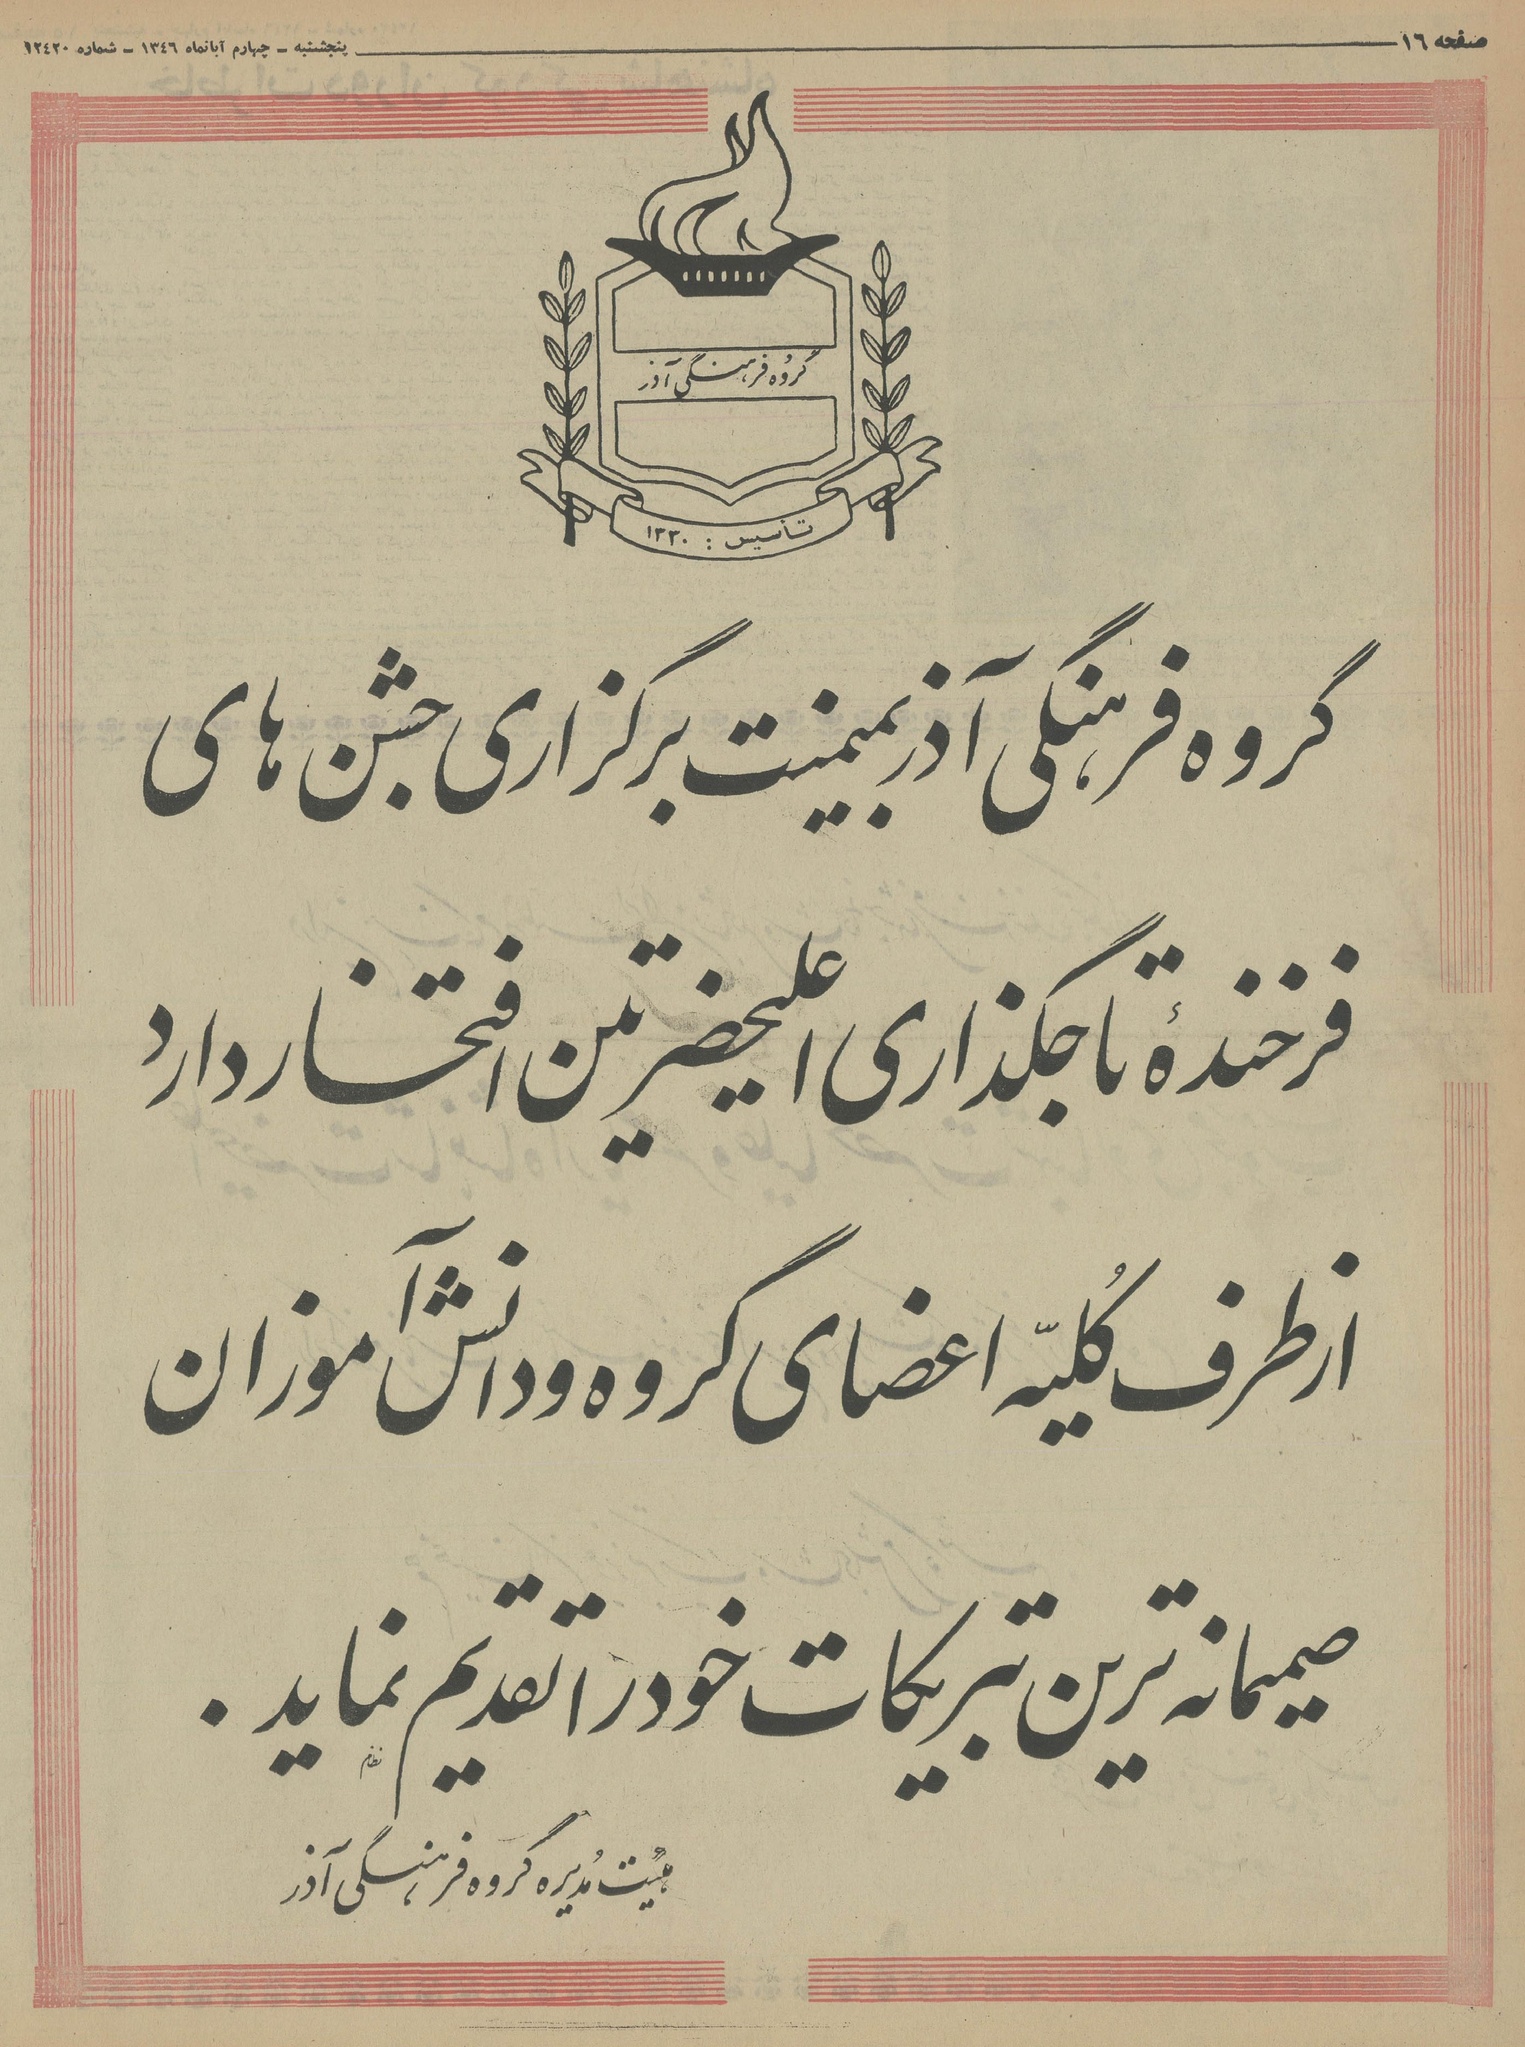 صفحه ١٦
پنجشنبه - چهارم آبانماه ١٣٤٦ - شماره ١٢٤٢٠
گروه فرهنگی آذر
تأسیس : ١٣٣٠
گروه فرهنگی آذر بمیمنت برگزاری جشن های
فرخندهٔ تاجگذاری اعلیحضرتین افتخار دارد
از طرف کُلیّه اعضای گروه و دانش آموزان
صمیمانه ترین تبریکات خود را تقدیم نماید .
هیئت مُدیره گروه فرهنگی آذر